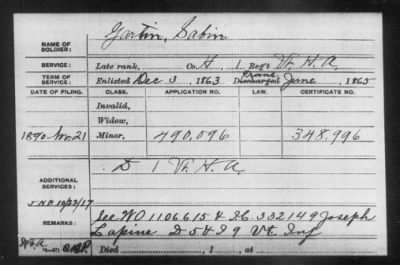 NAME OF SOLDIER: Gartin, Sabin
SERVICE: Late rank, Co. H, 1 Reg't Vt. H. A.
TERM OF SERVICE: Enlisted Dec 3, 1863 Discharged Trans June, 1865
DATE OF FILING. CLASS. APPLICATION NO. LAW. CERTIFICATE NO.
Invalid,
Widow,
1890 Nov. 21 Minor, 490,096 348,996
ADDITIONAL SERVICES: D 1 Vt. H. A.
REMARKS: See WO 1106615 & 332149 Joseph
Lapine D 5 & 9 Vt. Inf
Died , 1 , at